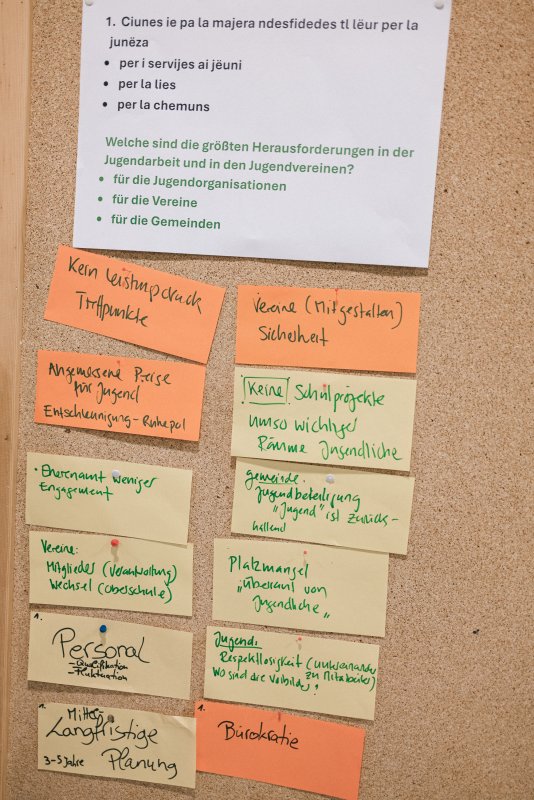 1. Ciunes ie pa la majera ndesfidedes tl lëur per la
junëza
• per i servijes ai jëuni
• per la lies
• per la chemuns
Welche sind die größten Herausforderungen in der
Jugendarbeit und in den Jugendvereinen?
• für die Jugendorganisationen
• für die Vereine
• für die Gemeinden
Kein Leistungsdruck
Treffpunkte
Angemessene Preise
für Jugend
Entschleunigung - Ruhepol
• Ehrenamt weniger
Engagement
Vereine:
Mitglieder (Verantwortung)
Wechsel (Oberschule)
1.
Personal
- Qualifikation
- Fluktuation
1.
Mittel-
Langfristige
3-5 Jahre Planung
Vereine (Mitgestalten)
Sicherheit
Keine Schulprojekte
umso wichtiger
Räume Jugendliche
gemeinde.
Jugendbeteiligung
"Jugend" ist zurück-
haltend
Platzmangel
"überall von
Jugendliche"
Jugend:
Respektlosigkeit (untereinander
zu Mitarbeiter)
Wo sind die Vorbilder?
1.
Bürokratie